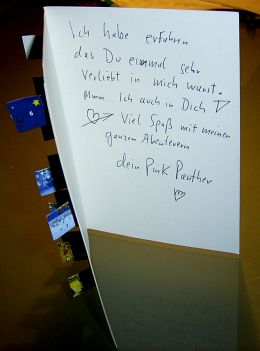 Ich habe erfahren
das Du einmal sehr
verliebt in mich warst.
Mmm... Ich auch in Dich
Viel Spaß mit meinen
ganzen Abenteuern
dein Pink Panther
6